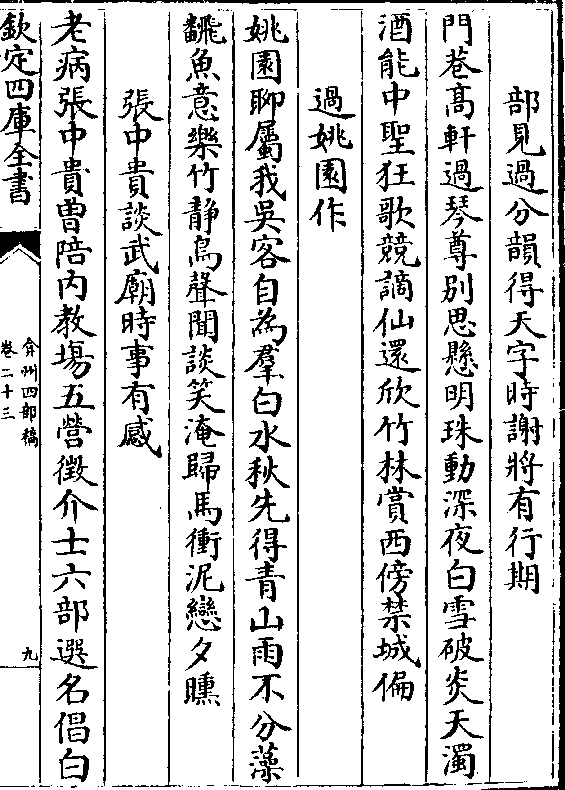 部見過分韻得天字時謝將有行期
門巷髙軒過琴尊别思懸明珠動深夜白雪破炎天濁
酒能中聖狂歌競謫仙還欣竹林賞西傍禁城偏
過姚園作
姚園聊屬我吳客自為羣白水秋先得青山雨不分藻
翻魚意樂竹静鳥聲聞談笑淹歸馬衝泥戀夕曛
張中貴談武廟時事有感
老病張中貴曽陪内教場五營徵介士六部選名倡白
欽定四庫全書
弇州四部稿
卷二十三
九